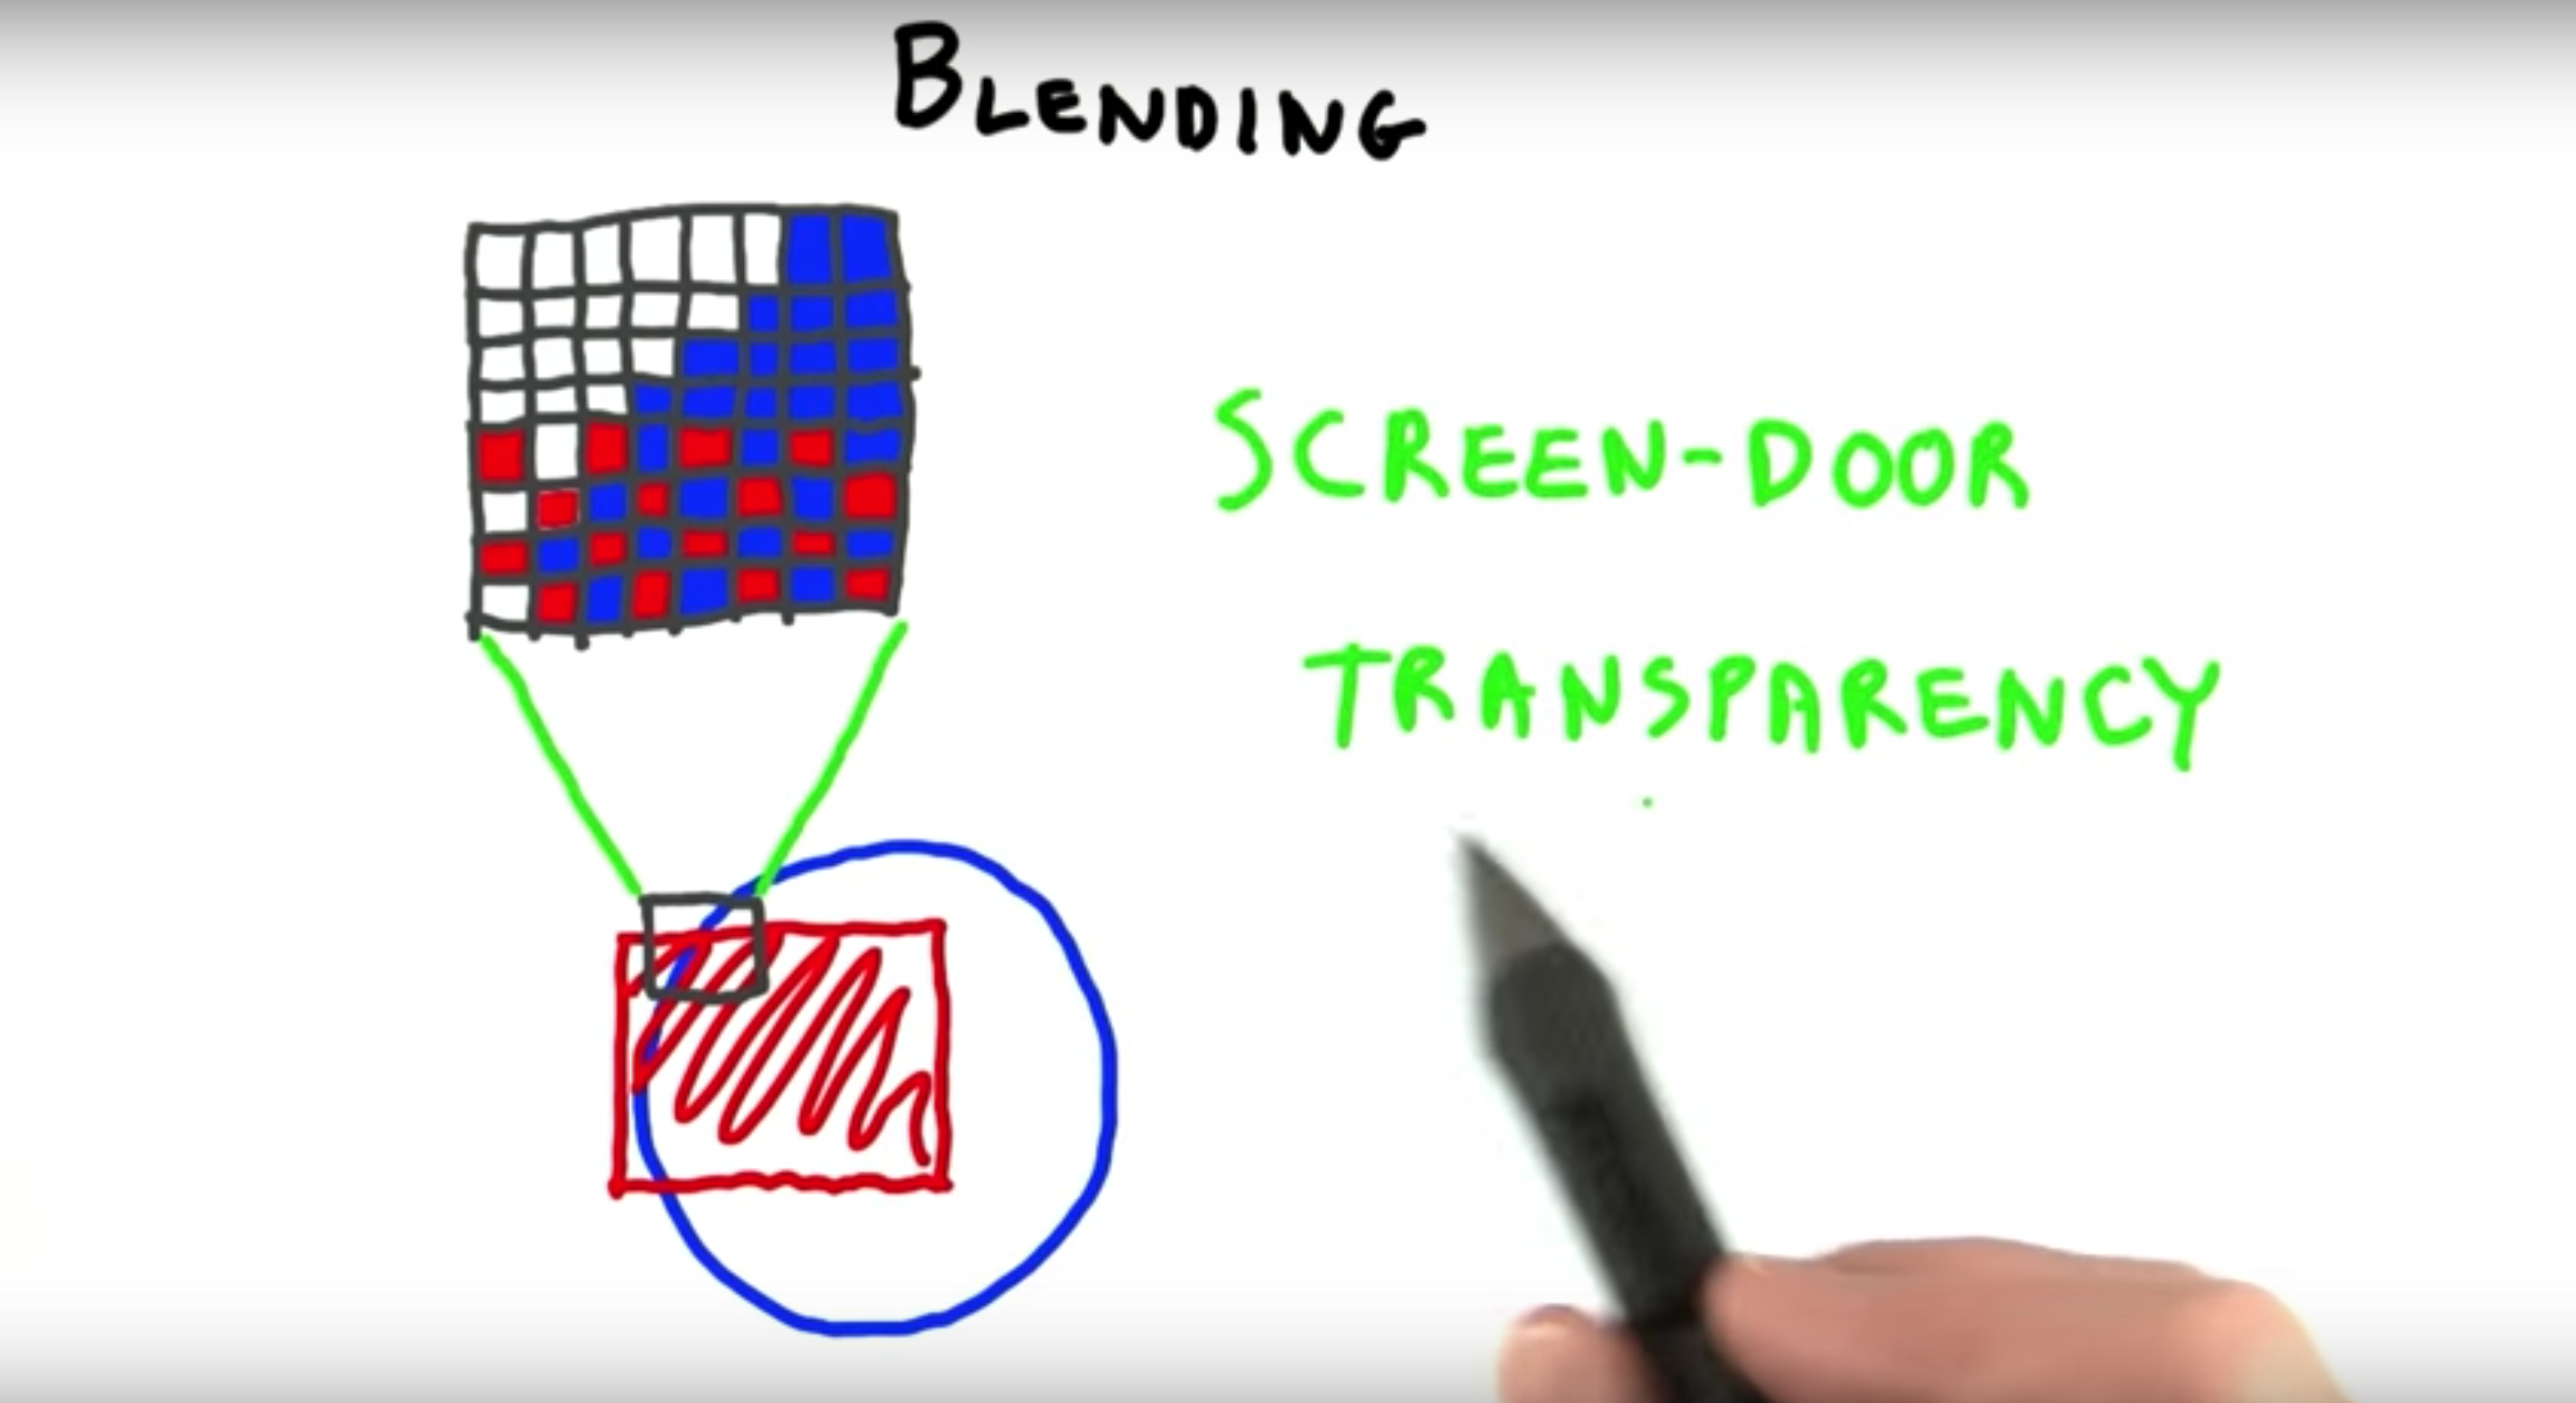 BLENDING
SCREEN-DOOR
TRANSPARENCY